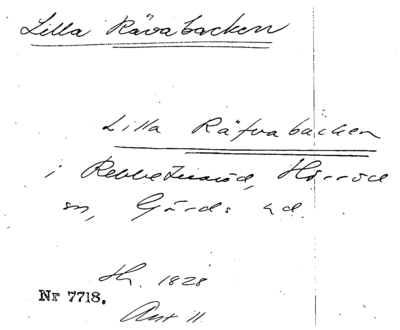 Lilla Rävabacken
Lilla Räfvabacken
i Rebbetuaröd, Hörröd
sn, Gärds hd.
Th. 1828
Nr 7718.
Ant 11